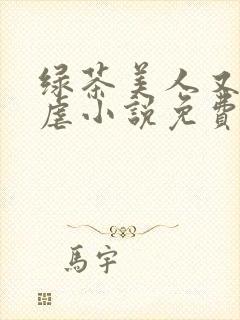 绿茶美人又
虐小說免費
馬宇